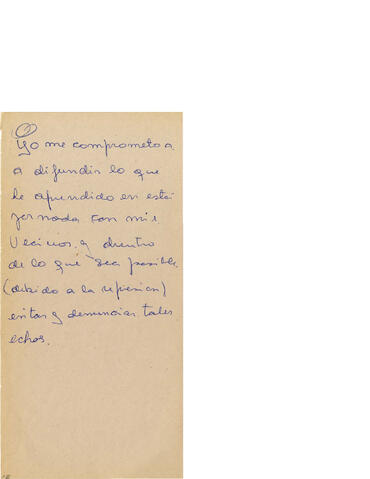 Yo me comprometo a
a difundir lo que
he aprendido en esta
jornada con mis
Vecinos. y dentro
de lo que sea posible.
(debido a la represion)
evitar y denunciar tales
echos.